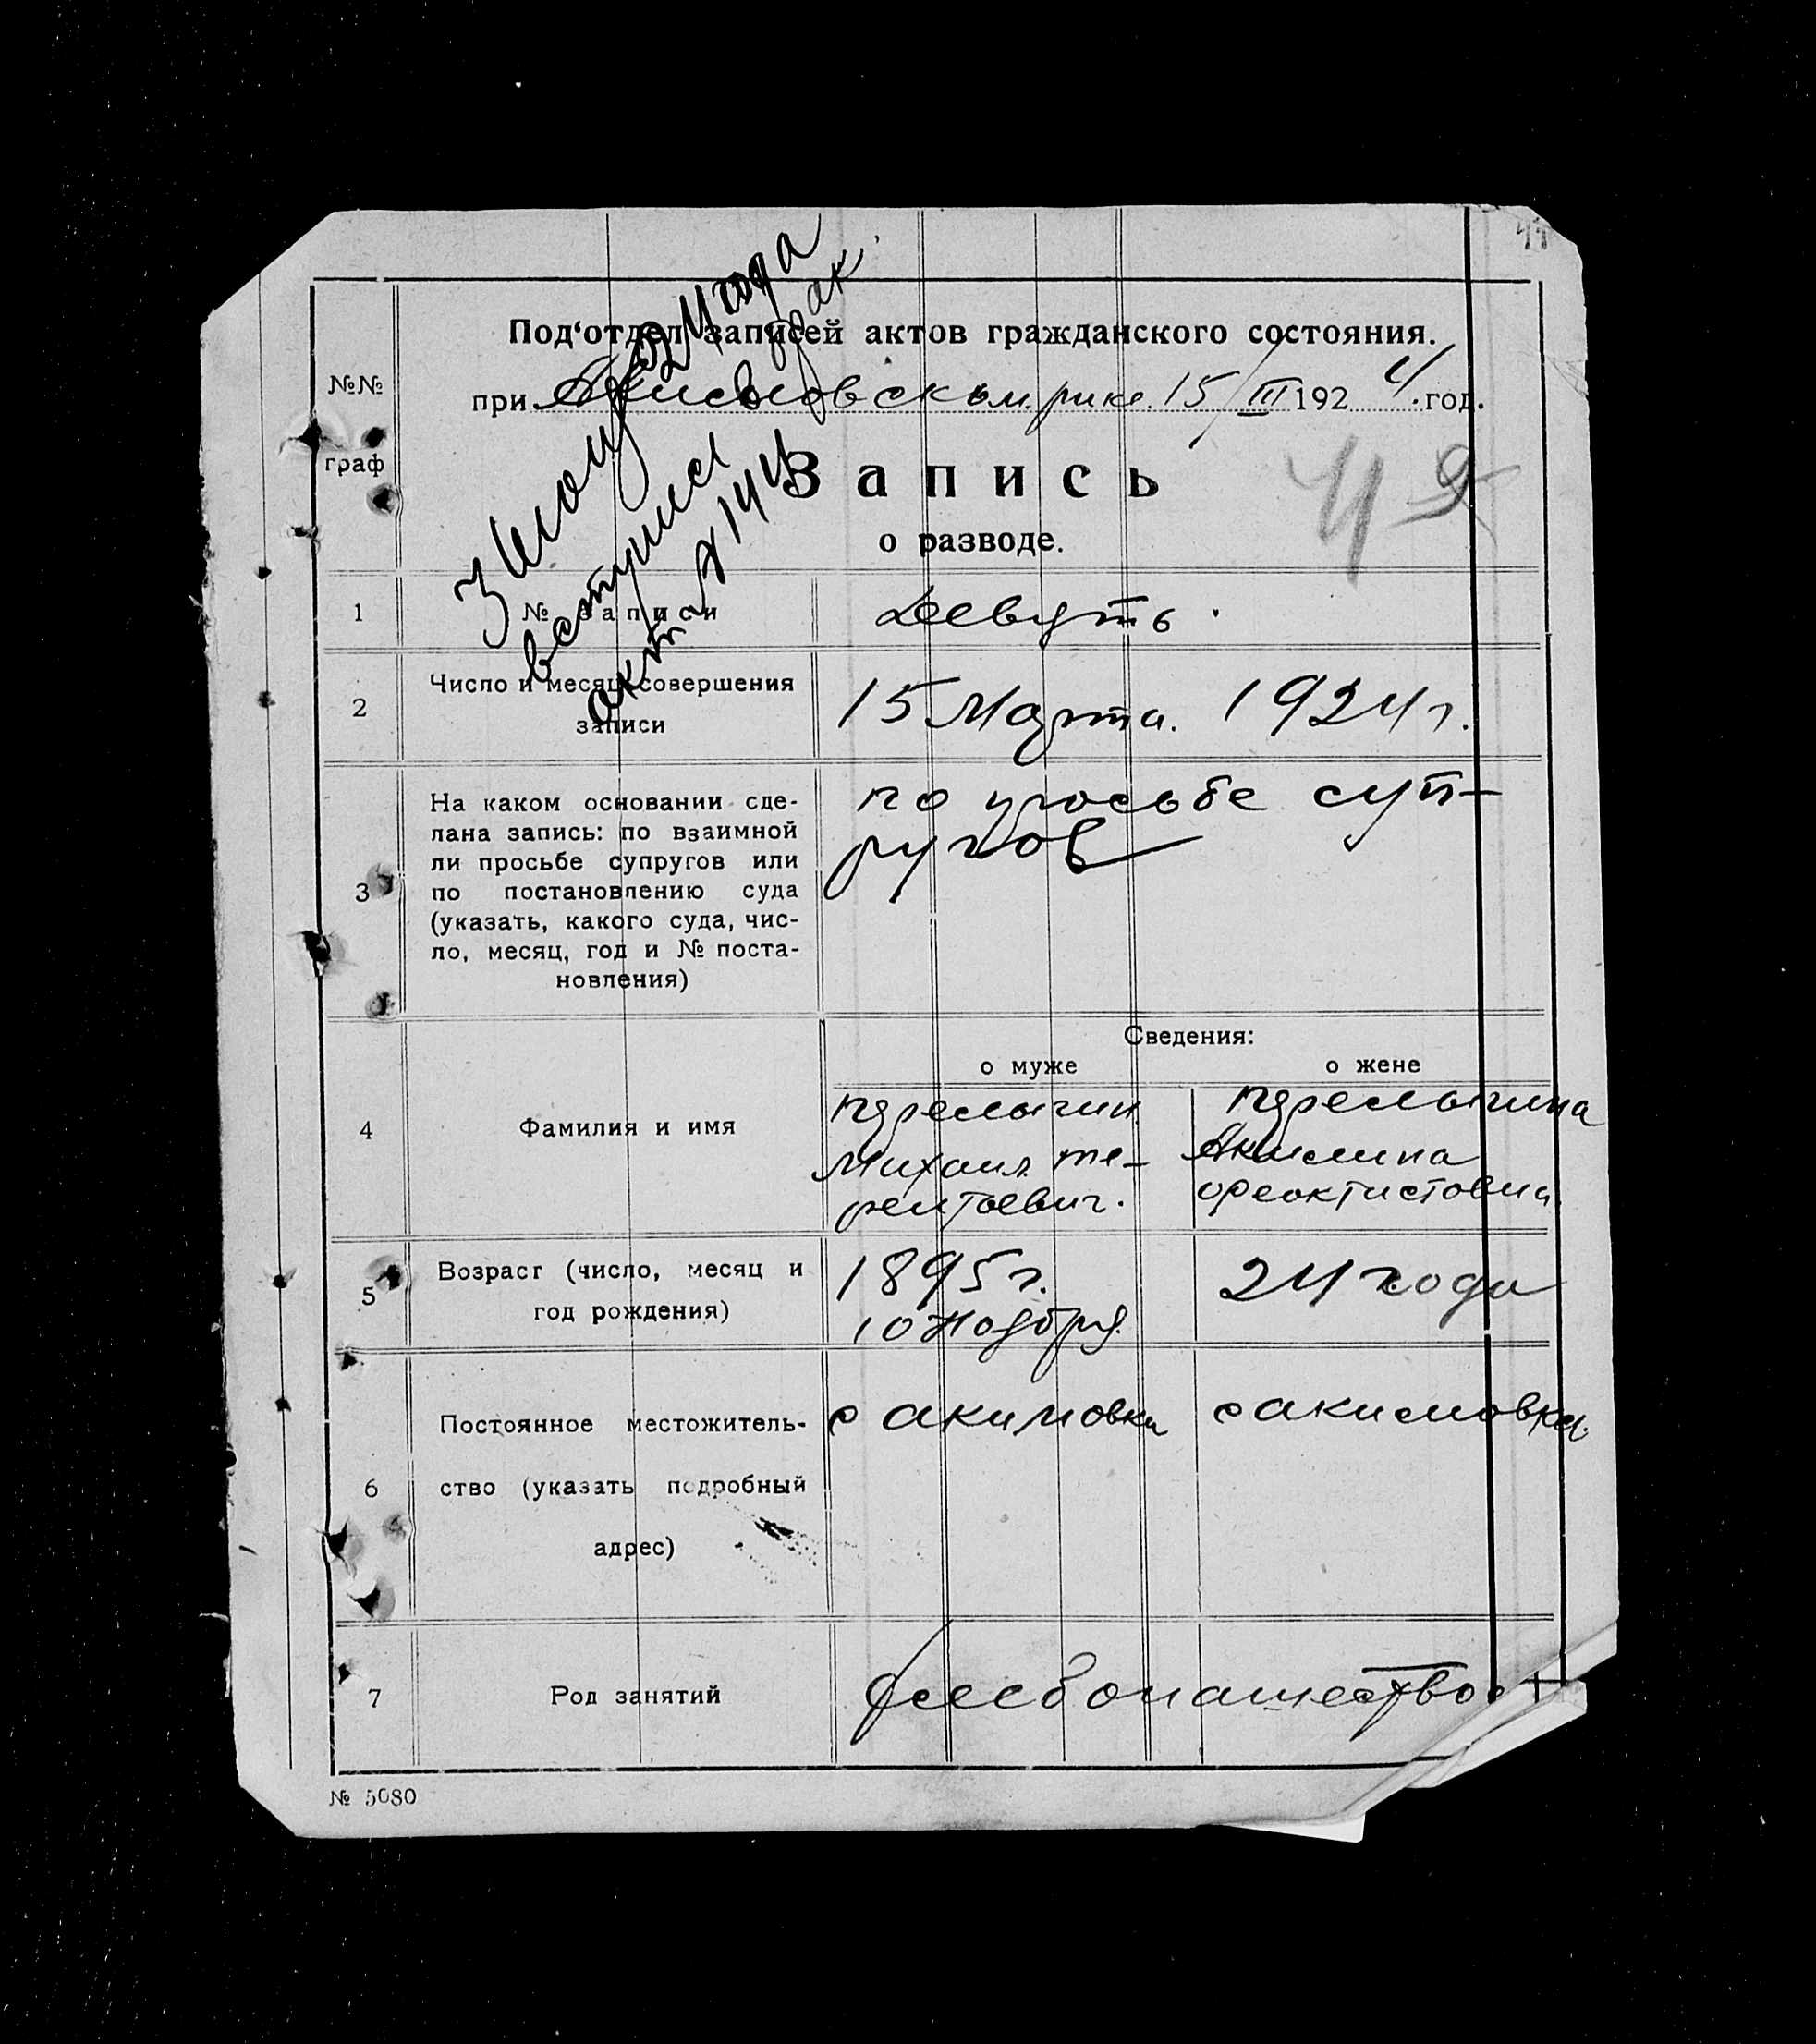 Под‘отдел записей актов гражданского состояния.
при Акимовском рике 15/III 1924 год.
№№
граф
3 июня 1924 года
вступил брак
акт № 144
Запись
о разводе.
49
1 № записи Девять.
2 Число и месяц совершения
записи
15 Марта. 1924 г.
3 На каком основании сде-
лана запись: по взаимной
ли просьбе супругов или
по постановлению суда
(указать, какого суда, чис-
ло, месяц, год и № поста-
новления)
по просьбе суп-
ругов
Сведения:
о муже о жене
4 Фамилия и имя
Перелыгин
Михаил Те-
рентьевич.
Перелыгина
Акилина
Феоктистовна
5 Возраст (число, месяц и
год рождения)
1895 г.
10 Ноября.
24 года
6 Постоянное местожитель-
ство (указать подробный
адрес)
с акимовка
с акимовка.
7 Род занятий
хлебопашество
№ 5080